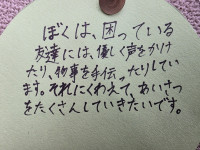 ぼくは、困っている
友達には、優しく声をかけ
たり、物事を手伝ったりしてい
ます。それにくわえて、あいさつ
をたくさんしていきたいです。